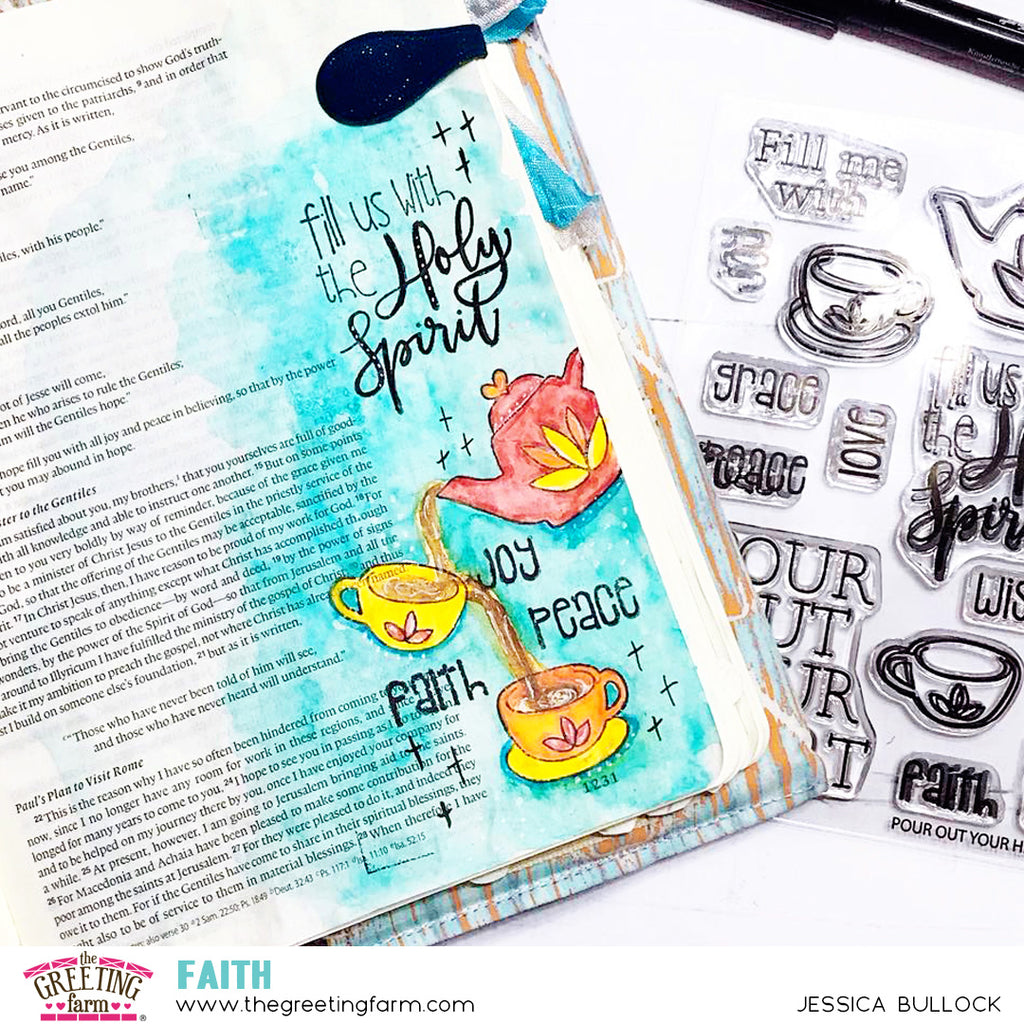 rvant to the circumcised to show God's truth-
ses given to the patriarchs, ⁹and in order that
mercy. As it is written,
se you among the Gentiles,
name."
les, with his people."
ord, all you Gentiles,
all the peoples extol him."
ot of Jesse will come,
en he who arises to rule the Gentiles;
m will the Gentiles hope."
hope fill you with all joy and peace in believing, so that by the power
t you may abound in hope.
ster to the Gentiles
am satisfied about you, my brothers, that you yourselves are full of good-
ith all knowledge and able to instruct one another. ¹⁵But on some points
en to you very boldly by way of reminder, because of the grace given me
be a minister of Christ Jesus to the Gentiles in the priestly service of the
God, so that the offering of the Gentiles may be acceptable, sanctified by the
rit. ¹⁷In Christ Jesus, then, I have reason to be proud of my work for God. ¹⁸For
ot venture to speak of anything except what Christ has accomplished through
bring the Gentiles to obedience—by word and deed, ¹⁹by the power of signs
wonders, by the power of the Spirit of God—so that from Jerusalem and all the
around to Illyricum I have fulfilled the ministry of the gospel of Christ; and thus
ake it my ambition to preach the gospel, not where Christ has already been named,
st I build on someone else's foundation, ²¹but as it is written,
"Those who have never been told of him will see,
and those who have never heard will understand."
Paul's Plan to Visit Rome
²²This is the reason why I have so often been hindered from coming
now, since I no longer have any room for work in these regions, and
longed for many years to come to you, ²⁴I hope to see you in passing as I go to
and to be helped on my journey there by you, once I have enjoyed your company for
a while. ²⁵At present, however, I am going to Jerusalem bringing aid to the saints.
²⁶For Macedonia and Achaia have been pleased to make some contribution for the
poor among the saints at Jerusalem. ²⁷For they were pleased to do it, and indeed they
owe it to them. For if the Gentiles have come to share in their spiritual blessings, they
ght also to be of service to them in material blessings. ²⁸When therefore I have
fill us with
the Holy
Spirit
Joy
Peace
Faith
1231
Fill me
with
grace
love
peace
fill us
the
Spir
OUR
UT
UR
RT
Faith
POUR OUT YOUR H
the
GREETING
farm
®
FAITH
www.thegreetingfarm.com
JESSICA BULLOCK